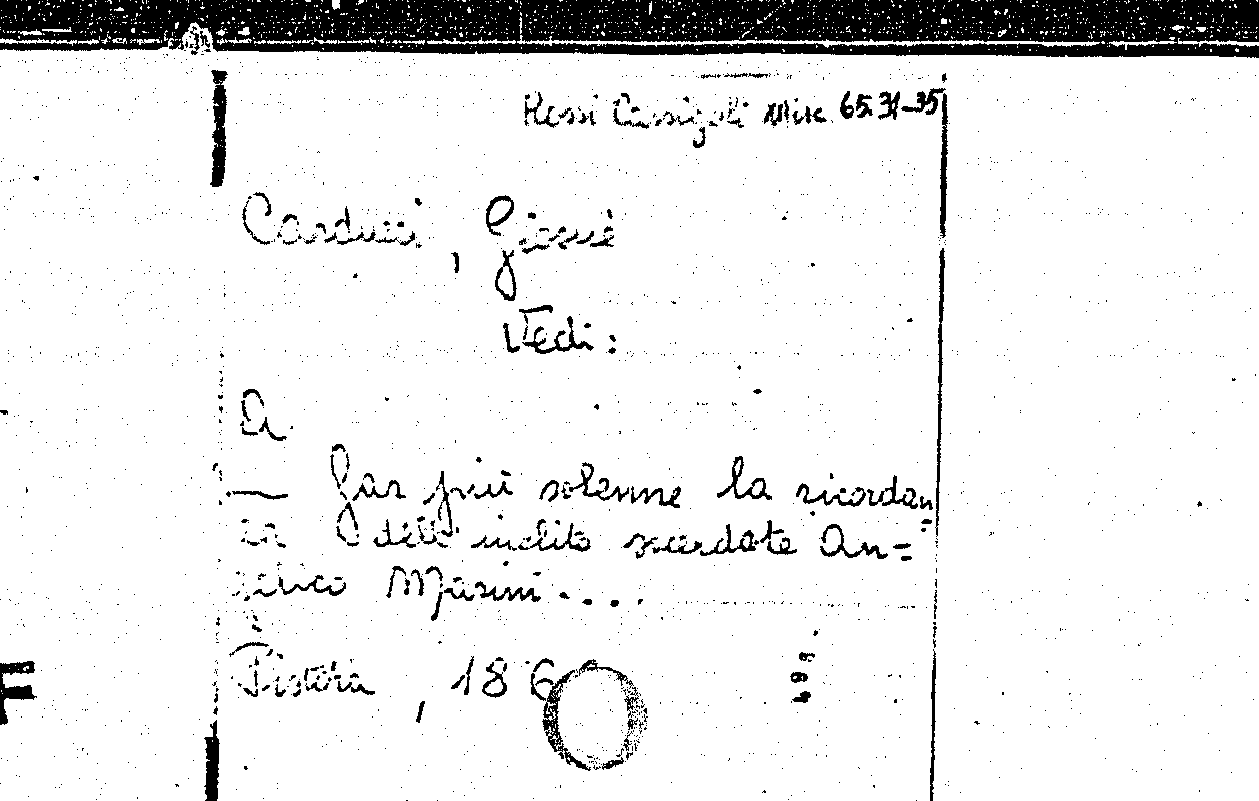 Rossi Cassigoli Misc 65.31-35
Carducci, Giosuè
Vedi:
A
— far più solenne la ricordan=
za dell' inclito sacerdote An=
gelico Marini....
Pistoia, 186
F